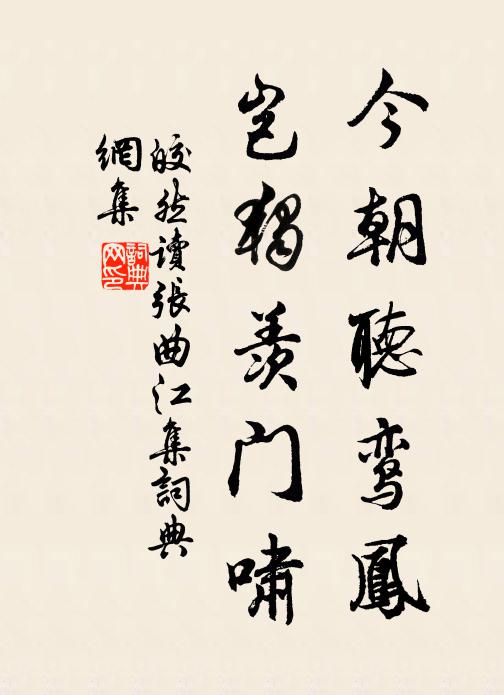 今朝聽鸾鳳
岂獨羨门嘯
皎然讀張曲江集詞典
網集
詞典
网印